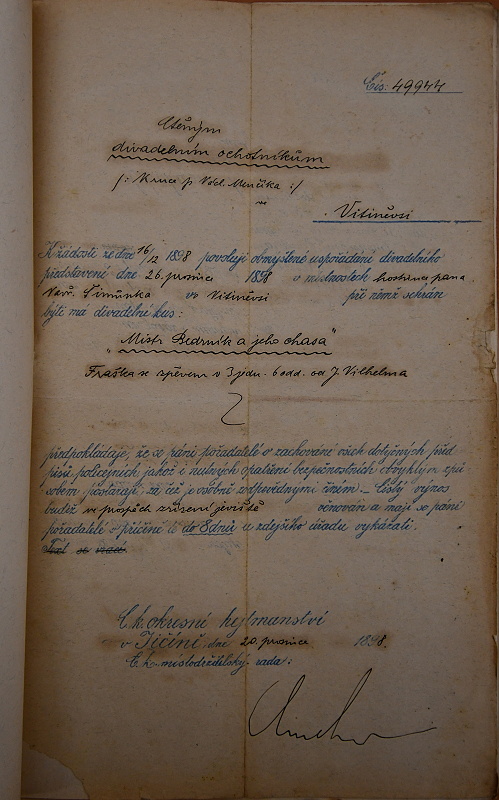 Čís. 49944
Ctěným
divadelním ochotníkům
/: K ruce p. Václ. Menčíka :/
ve
Vitiněvsi
K žádosti ze dne 16/12 1898 povoluji obmyšlené uspořádání divadelního
představení dne 26. prosince 1898 v místnostech hostince pana
Vavř. Šimůnka ve Vitiněvsi při němž sehrán
býti má divadelní kus:
„Mistr Bedrník a jeho chasa"
Fraška se zpěvem v 3 jedn. 6 odd. od J. Vilhelma
předpokládaje, že se páni pořadatelé o zachování všech dotyčných před
pisů policejních jakož i nutných opatření bezpečnostních obvyklým způ
sobem postarají, za čež je osobně zodpovědnými činím. – Čistý výnos
budiž ve prospěch zřízení jeviště věnován a mají se páni
pořadatelé v příčině té do 8 dnů u zdejšího úřadu vykázati.
se vrací.
C. k. okresní hejtmanství
v Jičíně, dne 20. prosince 1898.
C. k. místodržitelský rada: